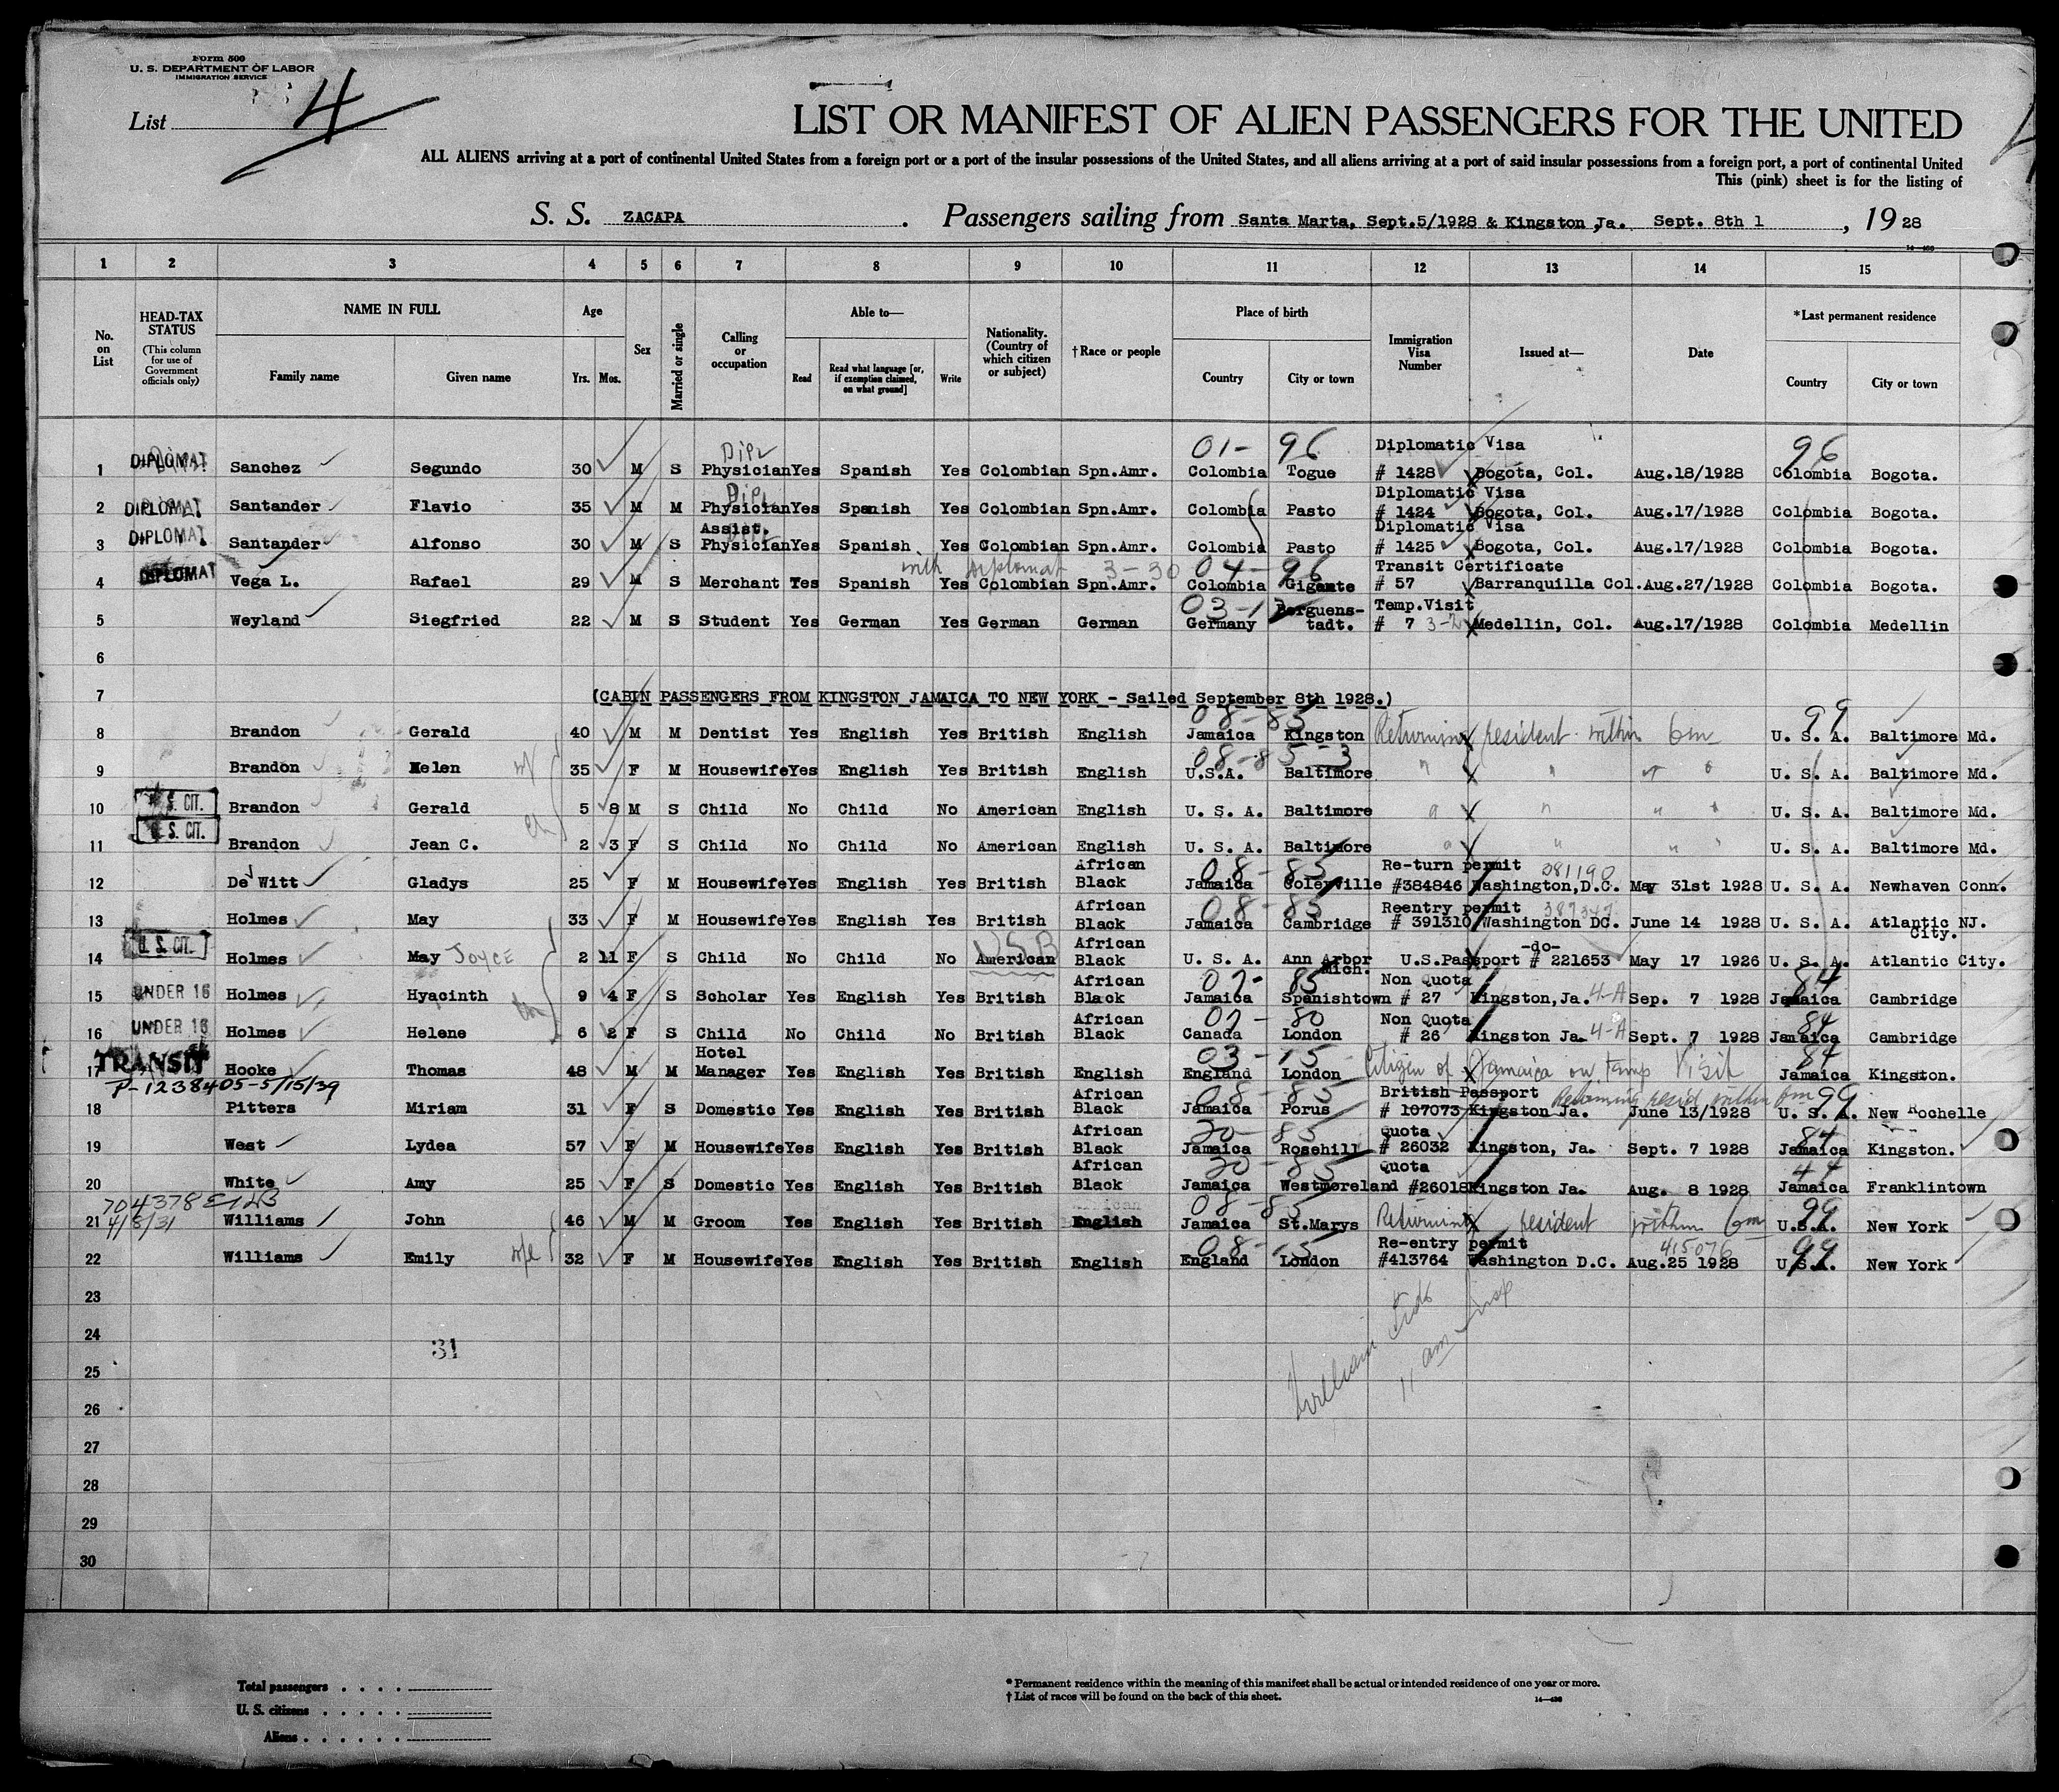 Form 500
U. S. DEPARTMENT OF LABOR
IMMIGRATION SERVICE
List 4
LIST OR MANIFEST OF ALIEN PASSENGERS FOR THE UNITED
ALL ALIENS arriving at a port of continental United States from a foreign port or a port of the insular possessions of the United States, and all aliens arriving at a port of said insular possessions from a foreign port, a port of continental United
This (pink) sheet is for the listing of
S. S. ZACAPA. Passengers sailing from Santa Marta, Sept.5/1928 & Kingston, Ja. Sept. 8th 1, 19 28
1 2 3 4 5 6 7 8 9 10 11 12 13 14 15
No. on List
HEAD-TAX STATUS (This column for use of Government officials only)
NAME IN FULL Family name Given name
Age Yrs. Mos.
Sex
Married or single
Calling or occupation
Able to— Read Read what language [or, if exemption claimed, on what ground] Write
Nationality. (Country of which citizen or subject)
†Race or people
Place of birth Country City or town
Immigration Visa Number
Issued at—
Date
*Last permanent residence Country City or town
01- 96 Diplomatic Visa 96
1 DIPLOMAT Sanchez Segundo 30 M S Dipl Physician Yes Spanish Yes Colombian Spn.Amr. Colombia Togue # 1428 Bogota, Col. Aug.18/1928 Colombia Bogota.
Diplomatic Visa
2 DIPLOMAT Santander Flavio 35 M M Dipl Physician Yes Spanish Yes Colombian Spn.Amr. Colombia Pasto # 1424 Bogota, Col. Aug.17/1928 Colombia Bogota.
Assist. Diplomatic Visa
3 DIPLOMAT Santander Alfonso 30 M S Physician Yes Spanish Yes Colombian Spn.Amr. Colombia Pasto # 1425 Bogota, Col. Aug.17/1928 Colombia Bogota.
with diplomat 3-30 04-96 Transit Certificate
4 DIPLOMAT Vega L. Rafael 29 M S Merchant Yes Spanish Yes Colombian Spn.Amr. Colombia Gigante # 57 Barranquilla Col. Aug.27/1928 Colombia Bogota.
Berguens- Temp.Visit
5 Weyland Siegfried 22 M S Student Yes German Yes German German Germany tadt. # 7 Medellin, Col. Aug.17/1928 Colombia Medellin
6
7 (CABIN PASSENGERS FROM KINGSTON JAMAICA TO NEW YORK - Sailed September 8th 1928.)
08-85 99
8 Brandon Gerald 40 M M Dentist Yes English Yes British English Jamaica Kingston Returning resident within 6m U. S. A. Baltimore Md.
08-85-3
9 Brandon Helen 35 F M Housewife Yes English Yes British English U.S.A. Baltimore " " U. S. A. Baltimore Md.
10 U. S. CIT. Brandon Gerald 5 8 M S Child No Child No American English U. S. A. Baltimore " " " U. S. A. Baltimore Md.
11 U. S. CIT. Brandon Jean C. 2 3 F S Child No Child No American English U. S. A. Baltimore " " " U. S. A. Baltimore Md.
African 08-85 Re-turn permit 381190
12 De Witt Gladys 25 F M Housewife Yes English Yes British Black Jamaica Coleyville #384846 Washington,D.C. May 31st 1928 U. S. A. Newhaven Conn.
African 08-85 Reentry permit
13 Holmes May 33 F M Housewife Yes English Yes British Black Jamaica Cambridge # 391310 Washington DC. June 14 1928 U. S. A. Atlantic NJ. City.
USB African -do-
14 U. S. CIT. Holmes May JOYCE 2 11 F S Child No Child No American Black U. S. A. Ann Arbor Mich. U.S.Passport # 221653 May 17 1926 U. S. A. Atlantic City.
African 07- 85 Non Quota 84
15 UNDER 16 Holmes Hyacinth 9 4 F S Scholar Yes English Yes British Black Jamaica Spanishtown # 27 Kingston,Ja. 4-A Sep. 7 1928 Jamaica Cambridge
African 07-80 Non Quota 84
16 UNDER 16 Holmes Helene 6 2 F S Child No Child No British Black Canada London # 26 Kingston Ja. 4-A Sept. 7 1928 Jamaica Cambridge
TRANSIT Hotel 03-15 84
17 Hooke Thomas 48 M M Manager Yes English Yes British English England London Citizen of Jamaica on Temp Visit Jamaica Kingston.
P-1238405-5/15/39 African 08-85 British Passport Returning resid within 6m 99
18 Pitters Miriam 31 F S Domestic Yes English Yes British Black Jamaica Porus # 107073 Kingston Ja. June 13/1928 U. S. A. New Rochelle
African 20-85 Quota 84
19 West Lydea 57 F M Housewife Yes English Yes British Black Jamaica Rosehill # 26032 Kingston, Ja. Sept. 7 1928 Jamaica Kingston.
African 20-85 Quota
20 White Amy 25 F S Domestic Yes English Yes British Black Jamaica Westmoreland #26018 Kingston Ja. Aug. 8 1928 Jamaica Franklintown
704378 08-85 99
21 4/8/31 Williams John 46 M M Groom Yes English Yes British English Jamaica St.Marys Returning resident within 6m U.S.A. New York
08-15 Re-entry permit 415076 99
22 Williams Emily wife 32 F M Housewife Yes English Yes British English England London #413764 Washington D.C. Aug.25 1928 U.S.A. New York
23
24
31
25
William
11 am
26
27
28
29
30
Total passengers
U. S. citizens
Aliens
* Permanent residence within the meaning of this manifest shall be actual or intended residence of one year or more.
† List of races will be found on the back of this sheet.